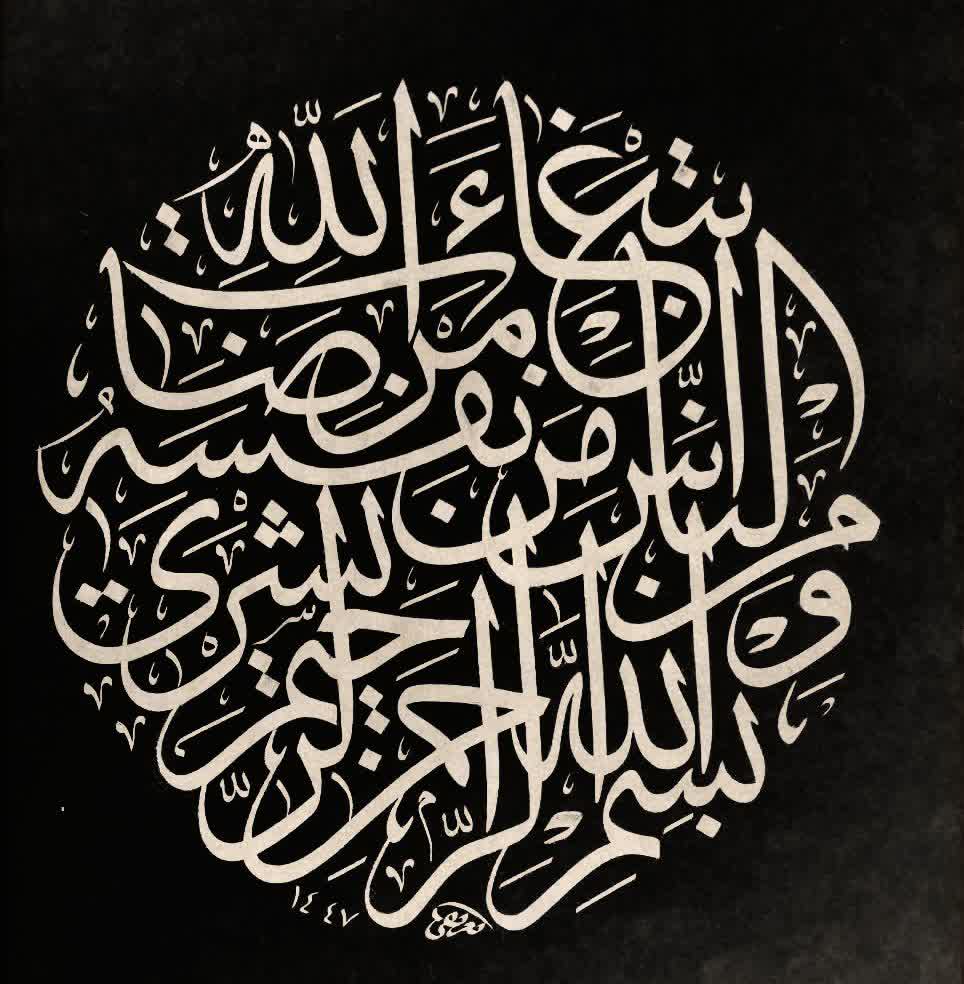 بسم الله الرحمن الرحيم
ومن الناس من يشري
نفسه
ابتغاء مرضات الله
١٤٤٧